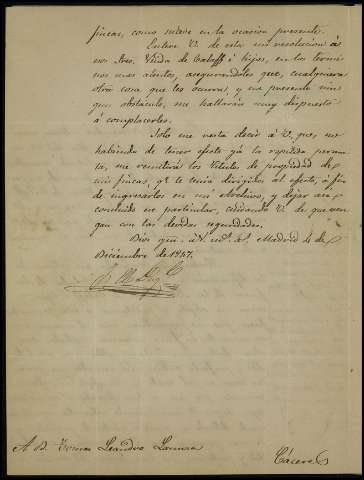 fincas, como sucede en la ocasion presente.
Entere V. de esta mi resolucion á
esos Sres. Viuda de Calaff é hijos, en los termi
nos mas atentos, asegurandoles que, cualquiera
otra cosa que les ocurra, y no presente nin
gun obstaculo, me hallarán muy dispuesto
á complacerles.
Solo me resta decir á V. que, no
habiendo de tener efecto ya la repetida permu
ta, me remitirá los Titulos de propiedad de
mis fincas, qe. le tenia dirigidos al efecto, á fin
de ingresarlos en mi Archivo, y dejar asi
concluido este particular, cuidando V. de que ven
gan con las devidas seguridades.
Dios gue. á V. ms. as. Madrid 4 de
Diciembre de 1847.
A D. Tomas Leandro
Cáceres